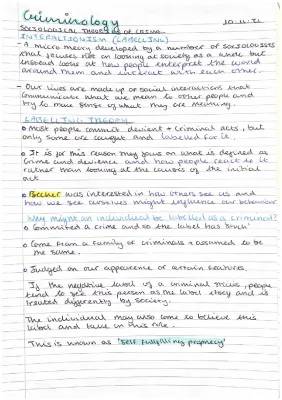 Criminology
10.11.21
SOCIOLOGICAL THEORIES OF CRIME -
INTERACTIONISM (LABELLING)
- A micro theory developed by a number of sociologists
that focuses not on looking at society as a whole but
instead looks at how people interpret the world
around them and interact with each other.
- Our lives are made up of social interactions that
communicate what we mean to other people and
try to make sense of what they are meaning.
LABELLING THEORY
• Most people commit deviant + criminal acts, but
only some are caught and labelled for it.
• It is for this reason they focus on what is defined as
crime and deviance and how people react to it
rather than looking at the causes of the initial
act
• Becker was interested in how others see us and
how we see ourselves might influence our behaviour
Why might an individual be labelled as a criminal?
• Committed a crime and so the label has 'stuck'
• Come from a family of criminals + assumed to be
the same.
• Judged on our appearance or certain features.
If the negative label of a criminal sticks, people
tend to see this person as the label says and is
treated differently by society.
The individual may also come to believe this
label and take on this role.
This is known as 'self fulfilling prophecy'